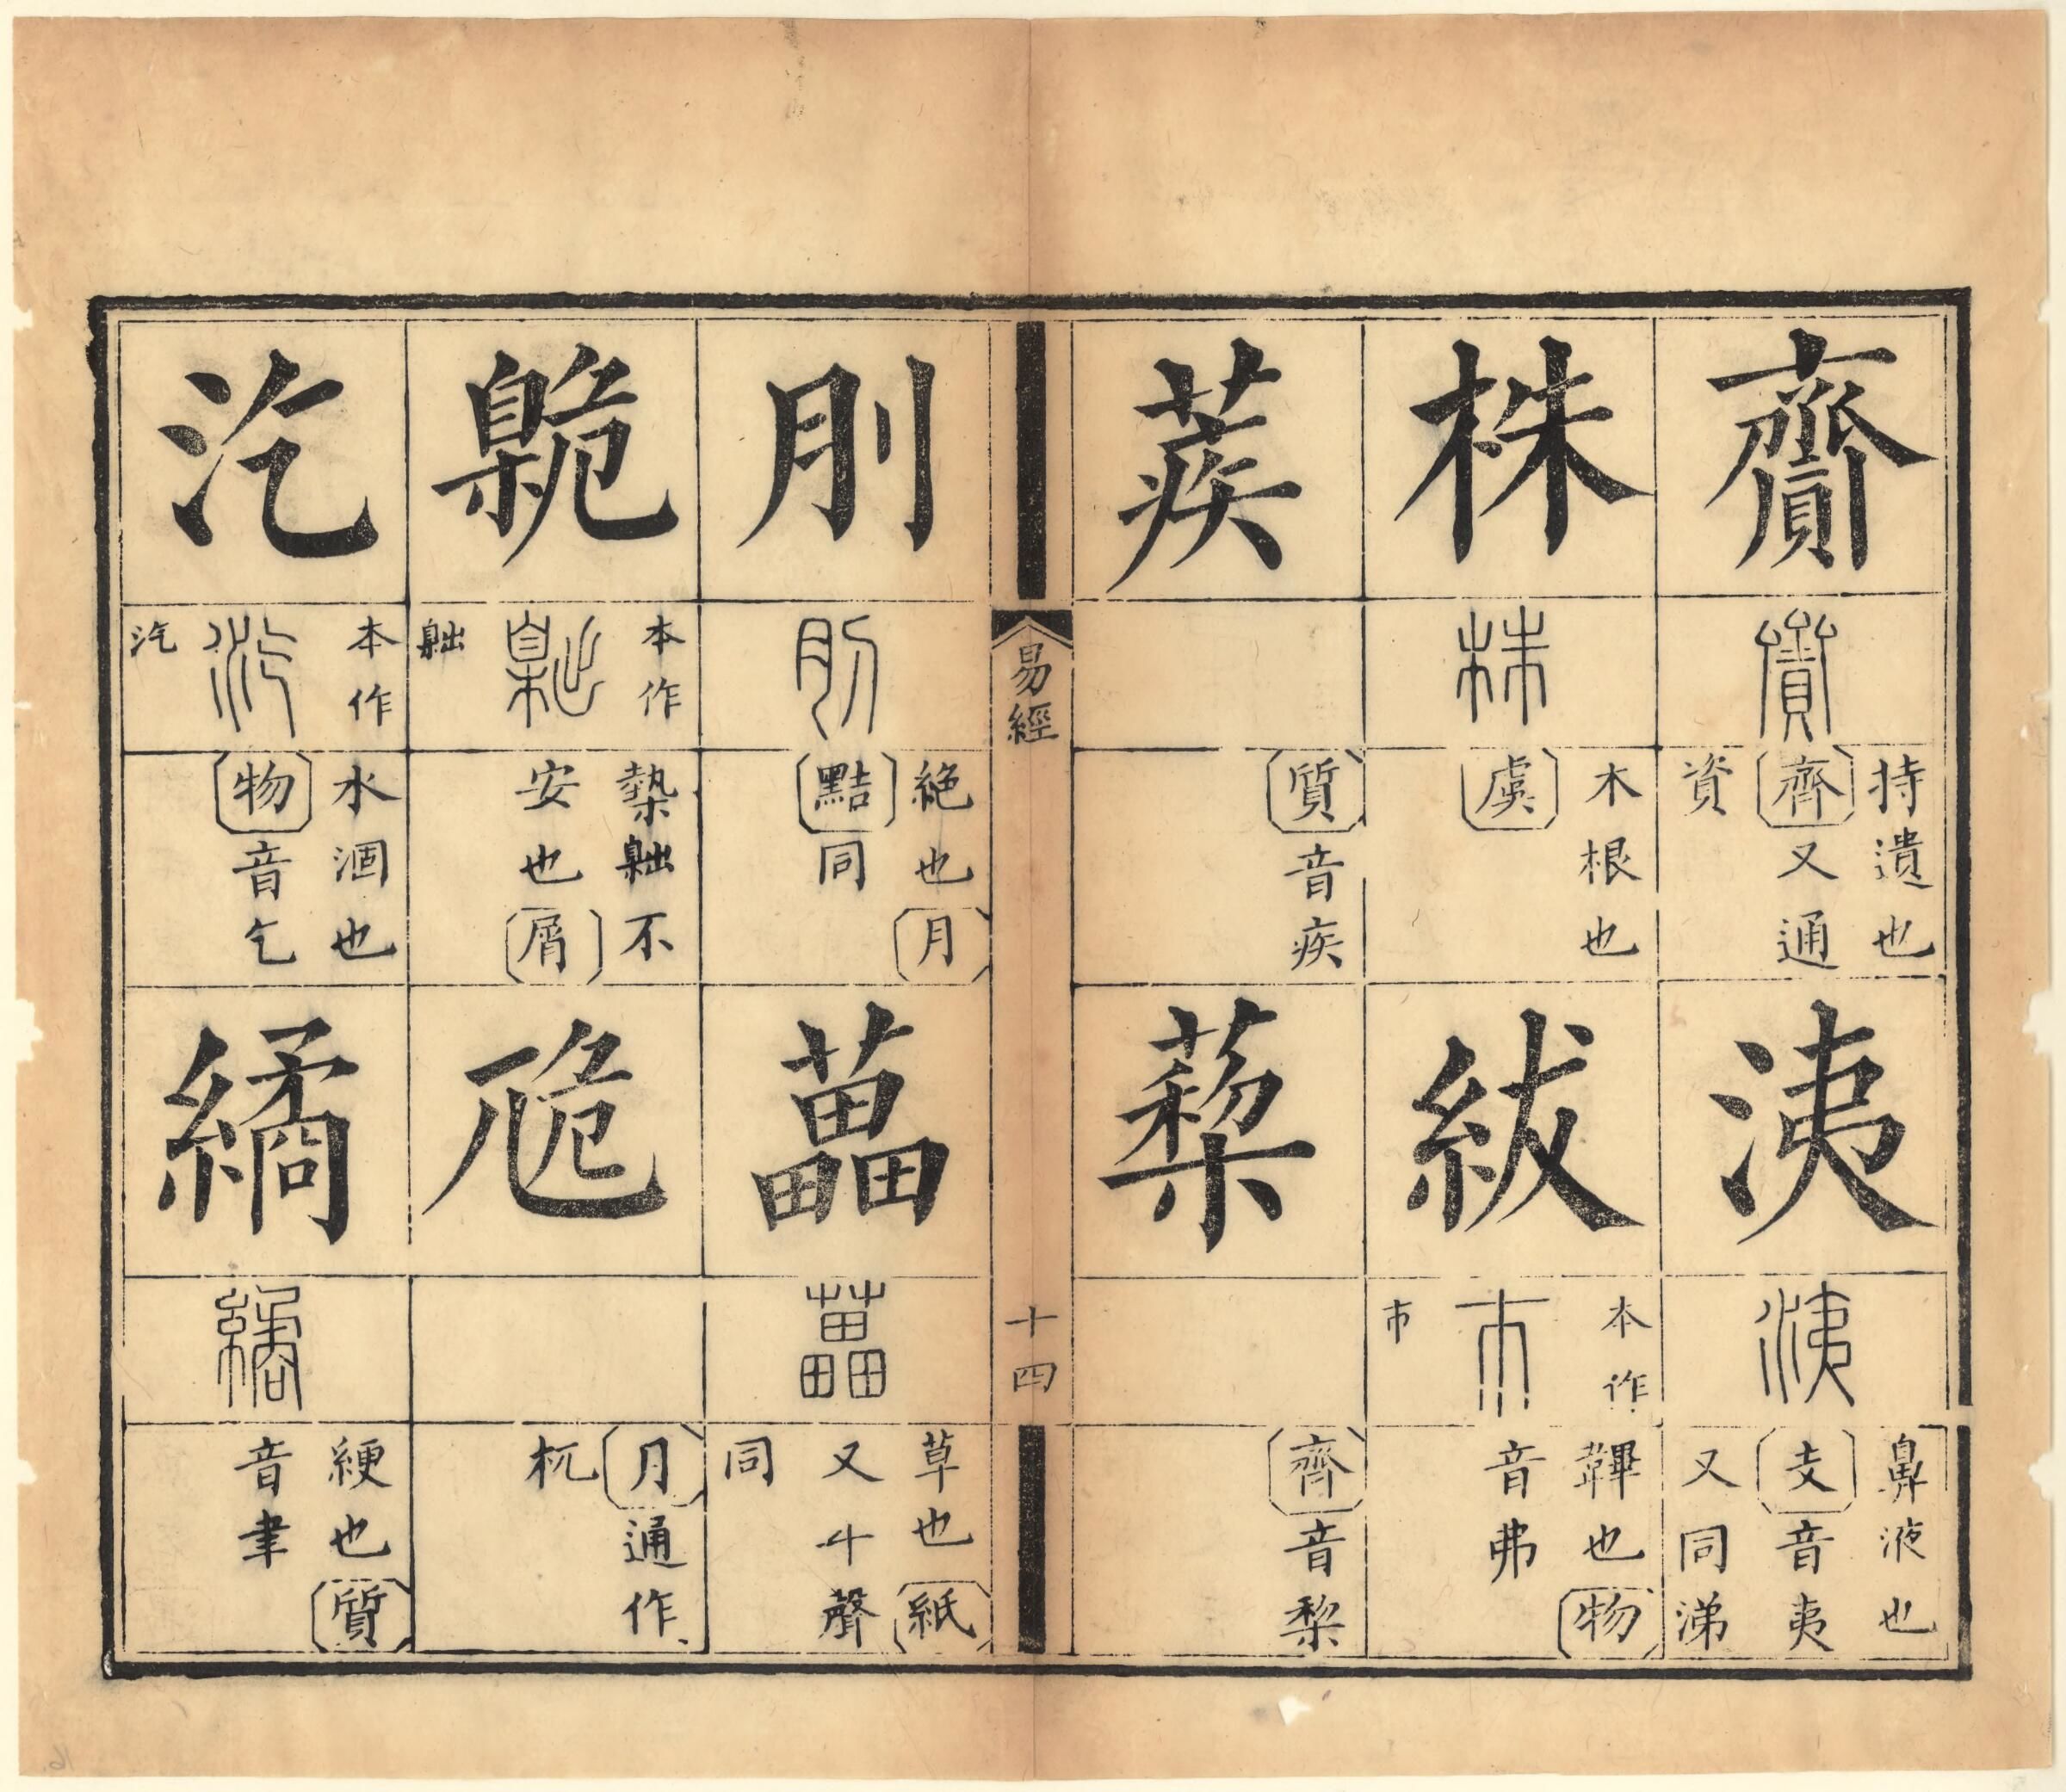 齎
齎
持遺也
齊又通
資
洟
洟
鼻液也
支音夷
又同涕
株
株
木根也
虞
紱
本作
巿
巿
鞸也物
音弗
蒺
質音疾
蔾
齊音梨
易經
十四
刖
刖
絶也月
黠同
藟
藟
草也紙
又斗聲
同
臲
本作
𡴎
𡴎
槷𡴎不
安也屑
卼
月通作
杌
汔
本作
汽
汽
水涸也
物音乞
繘
繘
綆也質
音聿